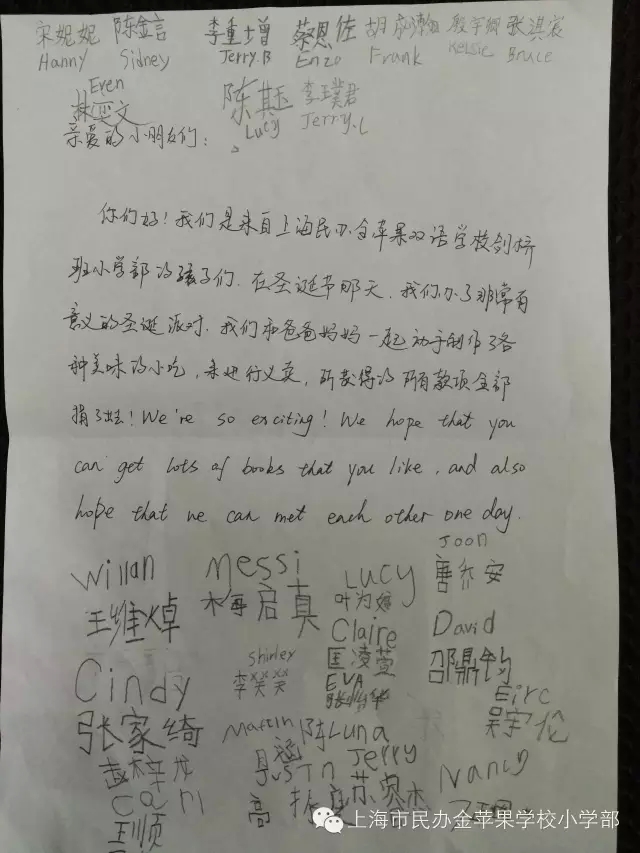 宋妮妮 陈金言 李重增 蔡恩佐 胡 张淇宸
Hanny Sidney Jerry.B Enzo Frank Kelsie Bruce
Even
林亚文 陈其玉 李璞君
Lucy Jerry.L
亲爱的小朋友们：
你们好！我们是来自上海民办金苹果双语学校剑桥
班小学部的孩子们．在圣诞节那天．我们办了非常有
意义的圣诞派对．我们和爸爸妈妈一起动手制作了各
种美味的小吃，来进行义卖，所获得的所有款项全部
捐了出去！We're so exciting! We hope that you
can get lots of books that you like, and also
hope that we can met each other one day.
Joon
Willan Messi Lucy 唐乔安
王维焯 梅启真 叶为婷
Claire David
Cindy Shirley 匡凌萱 邵鼎钧
李笑笑 EVA
Eirc
张家绮 陈Luna 吴宇伦
Justin Jerry Nancy
Carl 高 苏
王顺
上海市民办金苹果学校小学部